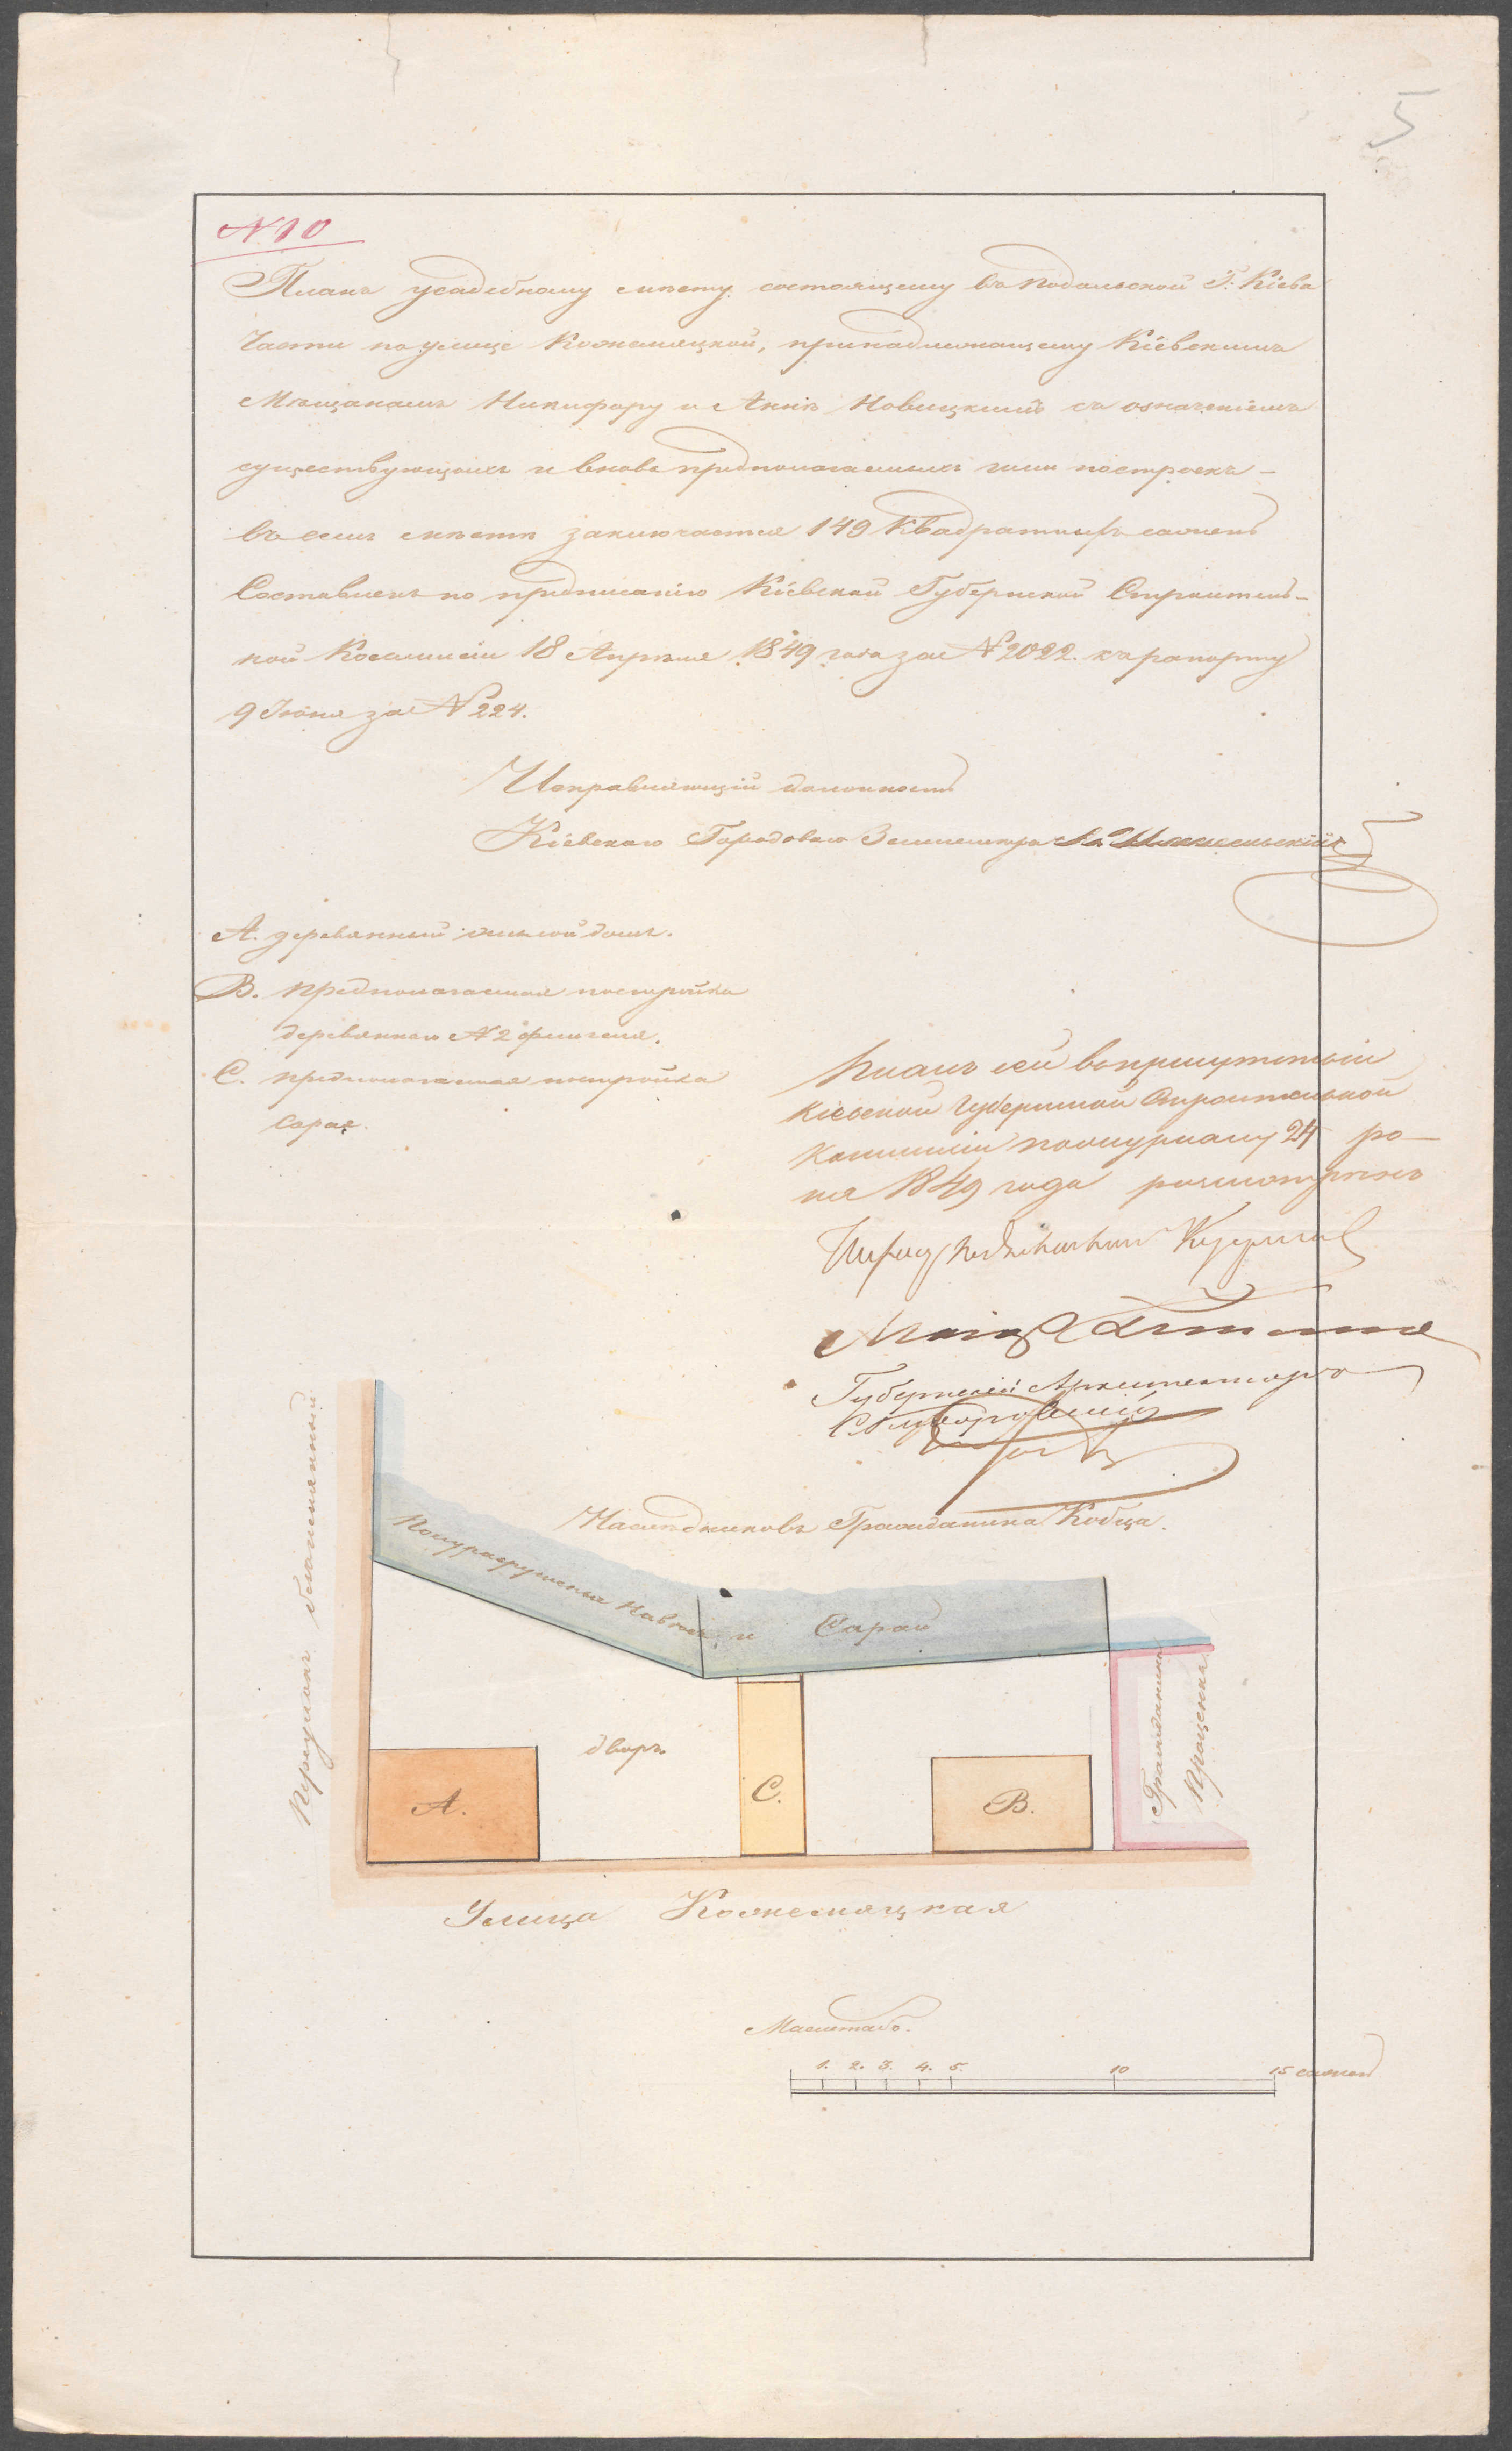 5
N 10
Планъ усадебному мѣсту состоящему въ Подольской Г: Кіева
Части по улице Кожемяцкой, принадлежащему Кіевскимъ
Мѣщанамъ Никифору и Аннѣ Новицкимъ съ означеніемъ
существующихъ и вновь предполагаемыхъ ими построекъ –
въ семъ мѣстѣ заключается 149 Квадратныхъ сажень
Составленъ по предписанію Кіевской Губернской Строитель–
ной Коммисіи 18 Апрѣля 1849 года за N 2022. къ рапорту
9 Іюня за N 224.
Исправляющій должность
Кіевскаго Городоваго Землемѣра
А. деревянный жилой домъ.
В. предполагаемая постройка
деревяннаго N 2 флигеля.
С. предполагаемая постройка
сарая.
Планъ сей въ присутствіи
Кіевской Губернской Строительной
Коммисіи по журналу 24 Iю–
ня 1849 года разсмотрѣнъ
Губернскій Архитекторъ
Наслѣдниковъ Гражданина Кобца.
Полуразрушеные Навѣсы и Сараи
Переулокъ
Гражданина
Проценка
дворъ
А.
С.
В.
Улица Кожемяцкая
Масштабъ.
1. 2. 3. 4. 5. 10 15 сажень